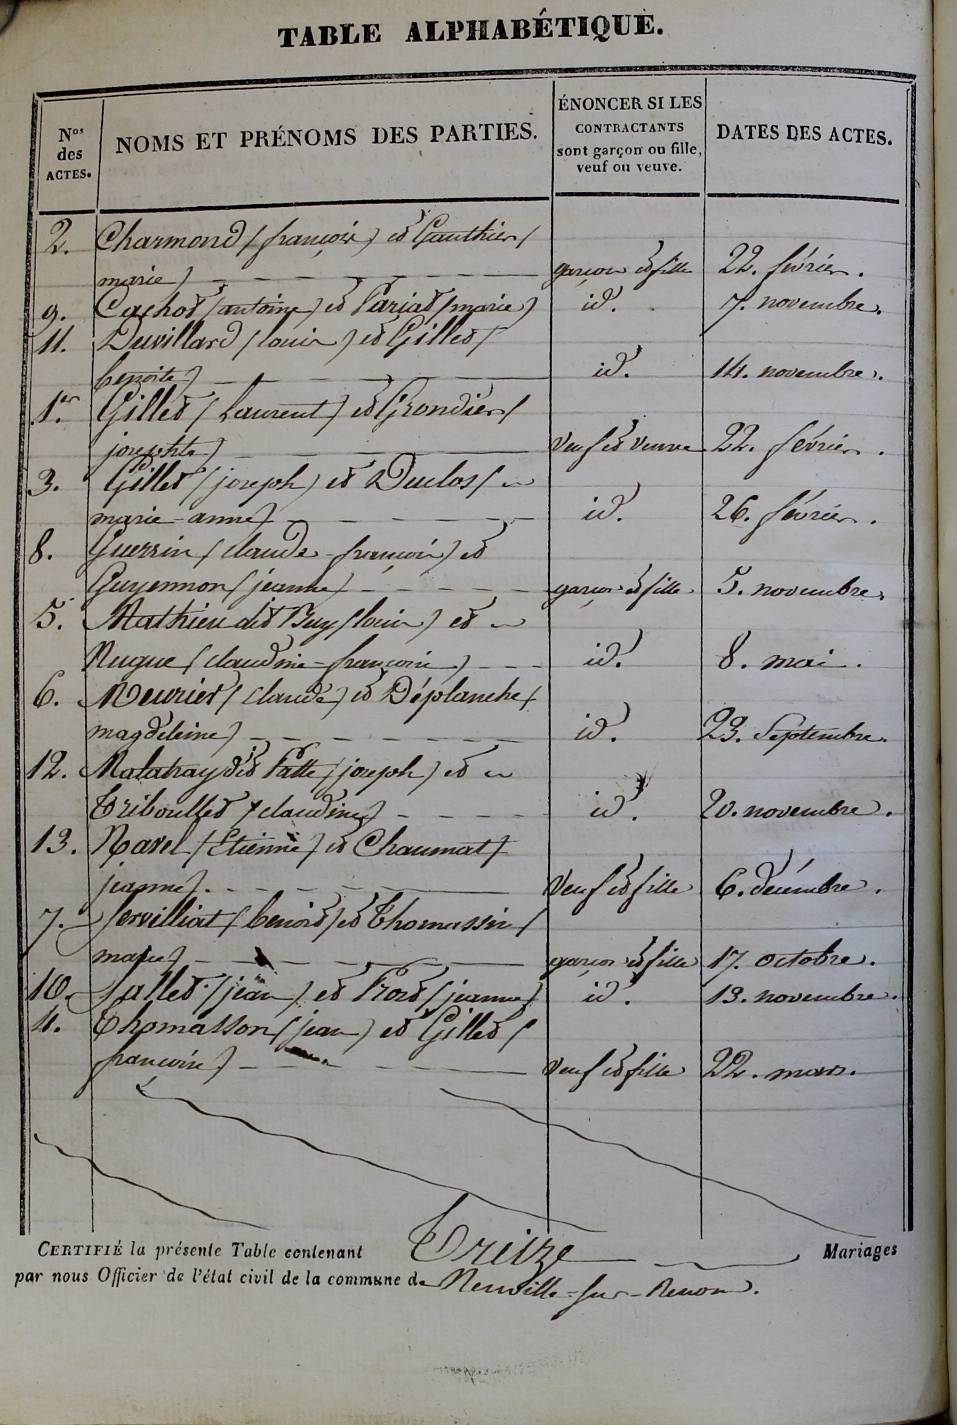 TABLE ALPHABÉTIQUE.
Nos des ACTES.
NOMS ET PRÉNOMS DES PARTIES.
ÉNONCER SI LES CONTRACTANTS sont garçon ou fille, veuf ou veuve.
DATES DES ACTES.
2. Charmond (françois) et Gauthier (
marie) garçon et fille 22. février.
9. Cachot (antoine) et Pariat (marie) id. 7. novembre.
11. Duvillard (louis) et Gillet (
benoite) id. 14. novembre.
1er. Gillet (Laurent) et Grondier (
josephte) veuf et veuve 22. février.
3. Gillet (joseph) et Duclos (
marie-anne) id. 26. février.
8. Guerrin (claude-françois) et
Guyennon (jeanne) garçon et fille 5. novembre.
5. Mathieu dit Puy (louis) et
Nugue (claudine-françoise) id. 8. mai.
6. Meurier (claude) et Déplanche (
magdeleine) id. 23. Septembre.
12. Malatray dit Patte (joseph) et
Triboullet (claudine) id. 20. novembre.
13. Ravel (Etienne) et Chaumat (
jeanne). Veuf et fille 6. décembre.
7. Servilliat (benoit) et Thomassin (
marie) garçon et fille 17. octobre.
10. Sallet (jean) et Prost (jeanne) id. 13. novembre.
4. Thomasson (jean) et Gillet (
françoise) Veuf et fille 22. mars.
CERTIFIÉ la présente Table contenant Treize Mariages
par nous Officier de l'état civil de la commune de Neuville-sur-Renon.